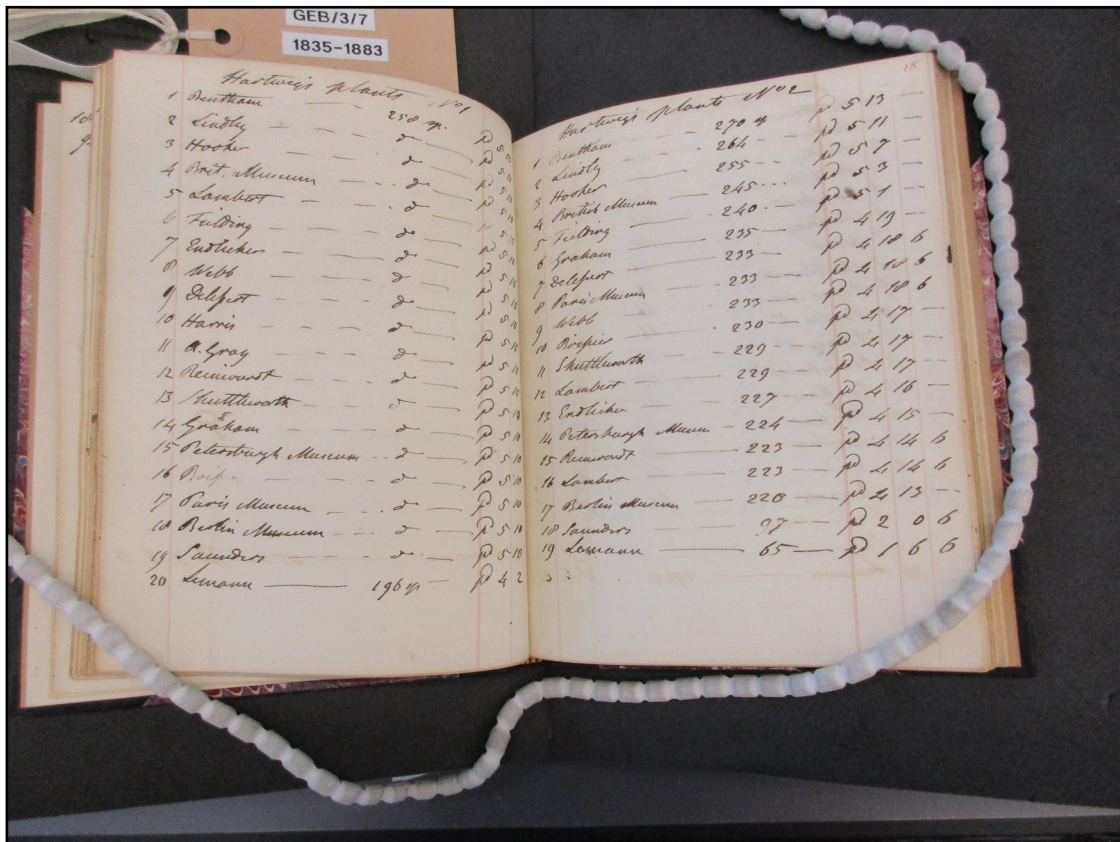 GEB/3/7
1835-1883
Hartweg's plants No 1
1 Bentham — — 258 sp. pd 5
2 Lindley — — d° — pd 5
3 Hooker — — d° — pd 5
4 Brit. Museum — — d° — pd 5
5 Lambert — — d° — pd 5
6 Fielding — — d° — pd 5
7 Endlicher — — d° — pd 5
8 Webb — — d° — pd 5
9 Delessert — — d° — pd 5
10 Harris — — d° — pd 5
11 A. Gray — — d° — pd 5 10
12 Reinwardt — — d° — pd 5 10
13 Shuttleworth — — d° — pd 5 10
14 Graham — — d° — pd 5 10
15 Petersburgh Museum — d° — pd 5 10
16 Boiss — — d° — pd 5 10
17 Paris Museum — — d° — pd 5 10
18 Berlin Museum — — d° — pd 5 10
19 Saunders — — d° — pd 5 10
20 Lemann — 196 sp — pd 4 2
18
Hartweg's plants No 2
1 Bentham — — 270 sp pd 5 13 —
2 Lindley — — 264 — pd 5 11 —
3 Hooker — — 255 — pd 5 7 —
4 British Museum — 245 — pd 5 3 —
5 Fielding — — 240 — pd 5 1 —
6 Graham — — 235 — pd 4 19 —
7 Delessert — — 233 — pd 4 18 6
8 Paris Museum — 233 — pd 4 18 6
9 Webb — — 233 — pd 4 18 6
10 Boissier — — 230 — pd 4 17 —
11 Shuttleworth — — 229 — pd 4 17 —
12 Lambert — — 229 — pd 4 17 —
13 Endlicher — — 227 — pd 4 16 —
14 Petersburgh Museum — 224 — pd 4 15 —
15 Reinwardt — — 223 — pd 4 14 6
16 Lambert — — 223 — pd 4 14 6
17 Berlin Museum — 220 — pd 4 13 —
18 Saunders — — 97 — pd 2 0 6
19 Lemann — 65 — pd 1 6 6